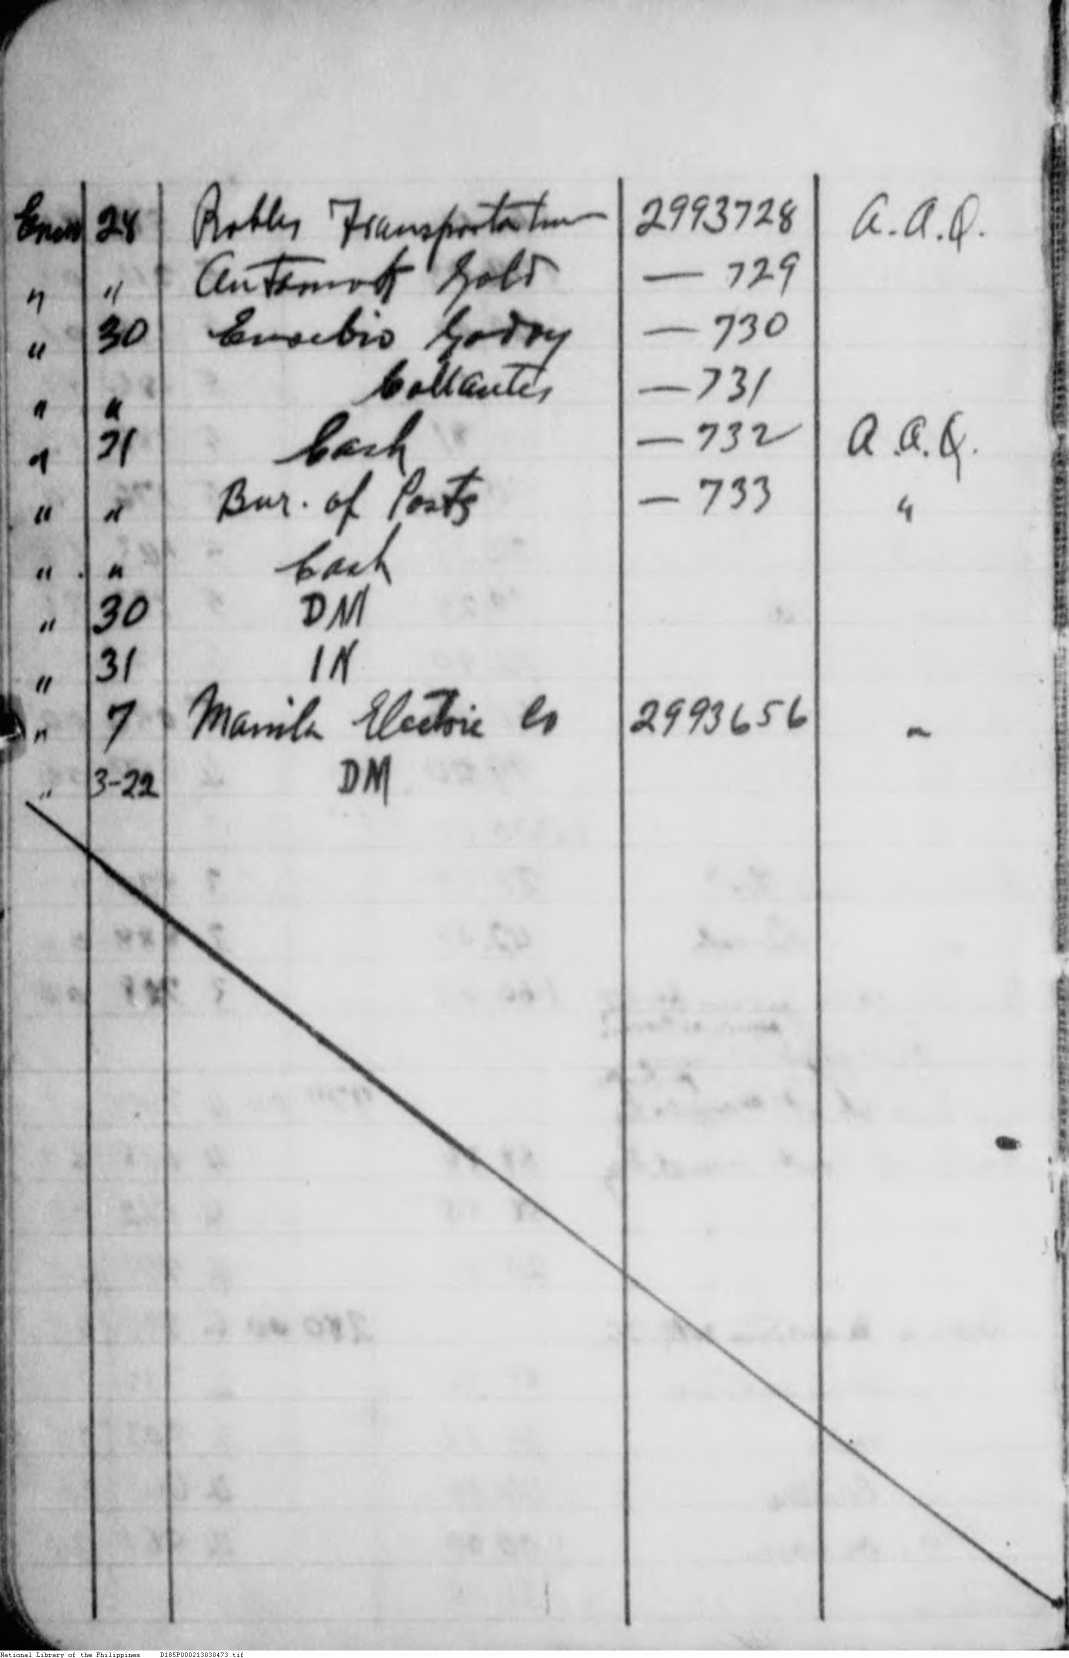 Enero 28 Robles Transportation 2993728 A.A.Q.
" " Gold — 729
" 30 Eusebio Godoy — 730
" " Collantes — 731
" 31 Cash — 732 A.A.Q.
" " Bur. of Posts — 733 "
" " Cash
" 30 DM
" 31 IN
" 7 Manila Electric Co 2993656 "
" 3-22 DM
National Library of the Philippines D185P000213030473.tif